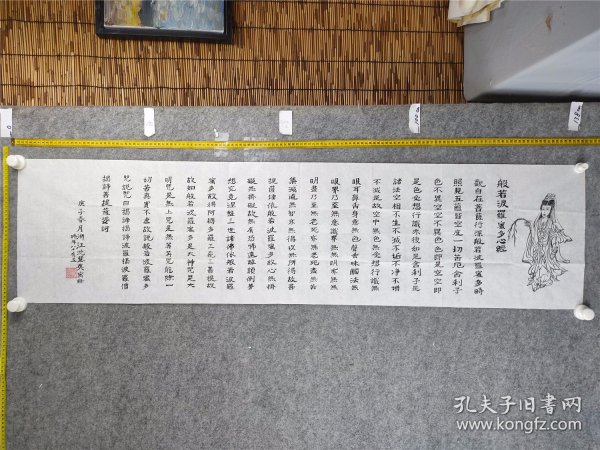 般若波羅蜜多心經
觀自在菩薩行深般若波羅蜜多時
照見五蘊皆空度一切苦厄舍利子
色不異空空不異色色即是空空即
是色受想行識亦復如是舍利子是
諸法空相不生不滅不垢不淨不增
不減是故空中無色無受想行識無
眼耳鼻舌身意無色聲香味觸法無
眼界乃至無意識界無無明亦無無
明盡乃至無老死亦無老死盡無苦
集滅道無智亦無得以無所得故菩
提薩埵依般若波羅蜜多故心無掛
礙無掛礙故無有恐怖遠離顛倒夢
想究竟涅槃三世諸佛依般若波羅
蜜多故得阿耨多羅三藐三菩提故
知般若波羅蜜多是大神咒是大
明咒是無上咒是無等等咒能除一
切苦真實不虛故說般若波羅蜜多
咒說咒曰揭諦揭諦波羅揭諦波羅僧
揭諦菩提薩婆訶
庚子春月湖江
孔夫子旧書网
www.kongfz.com